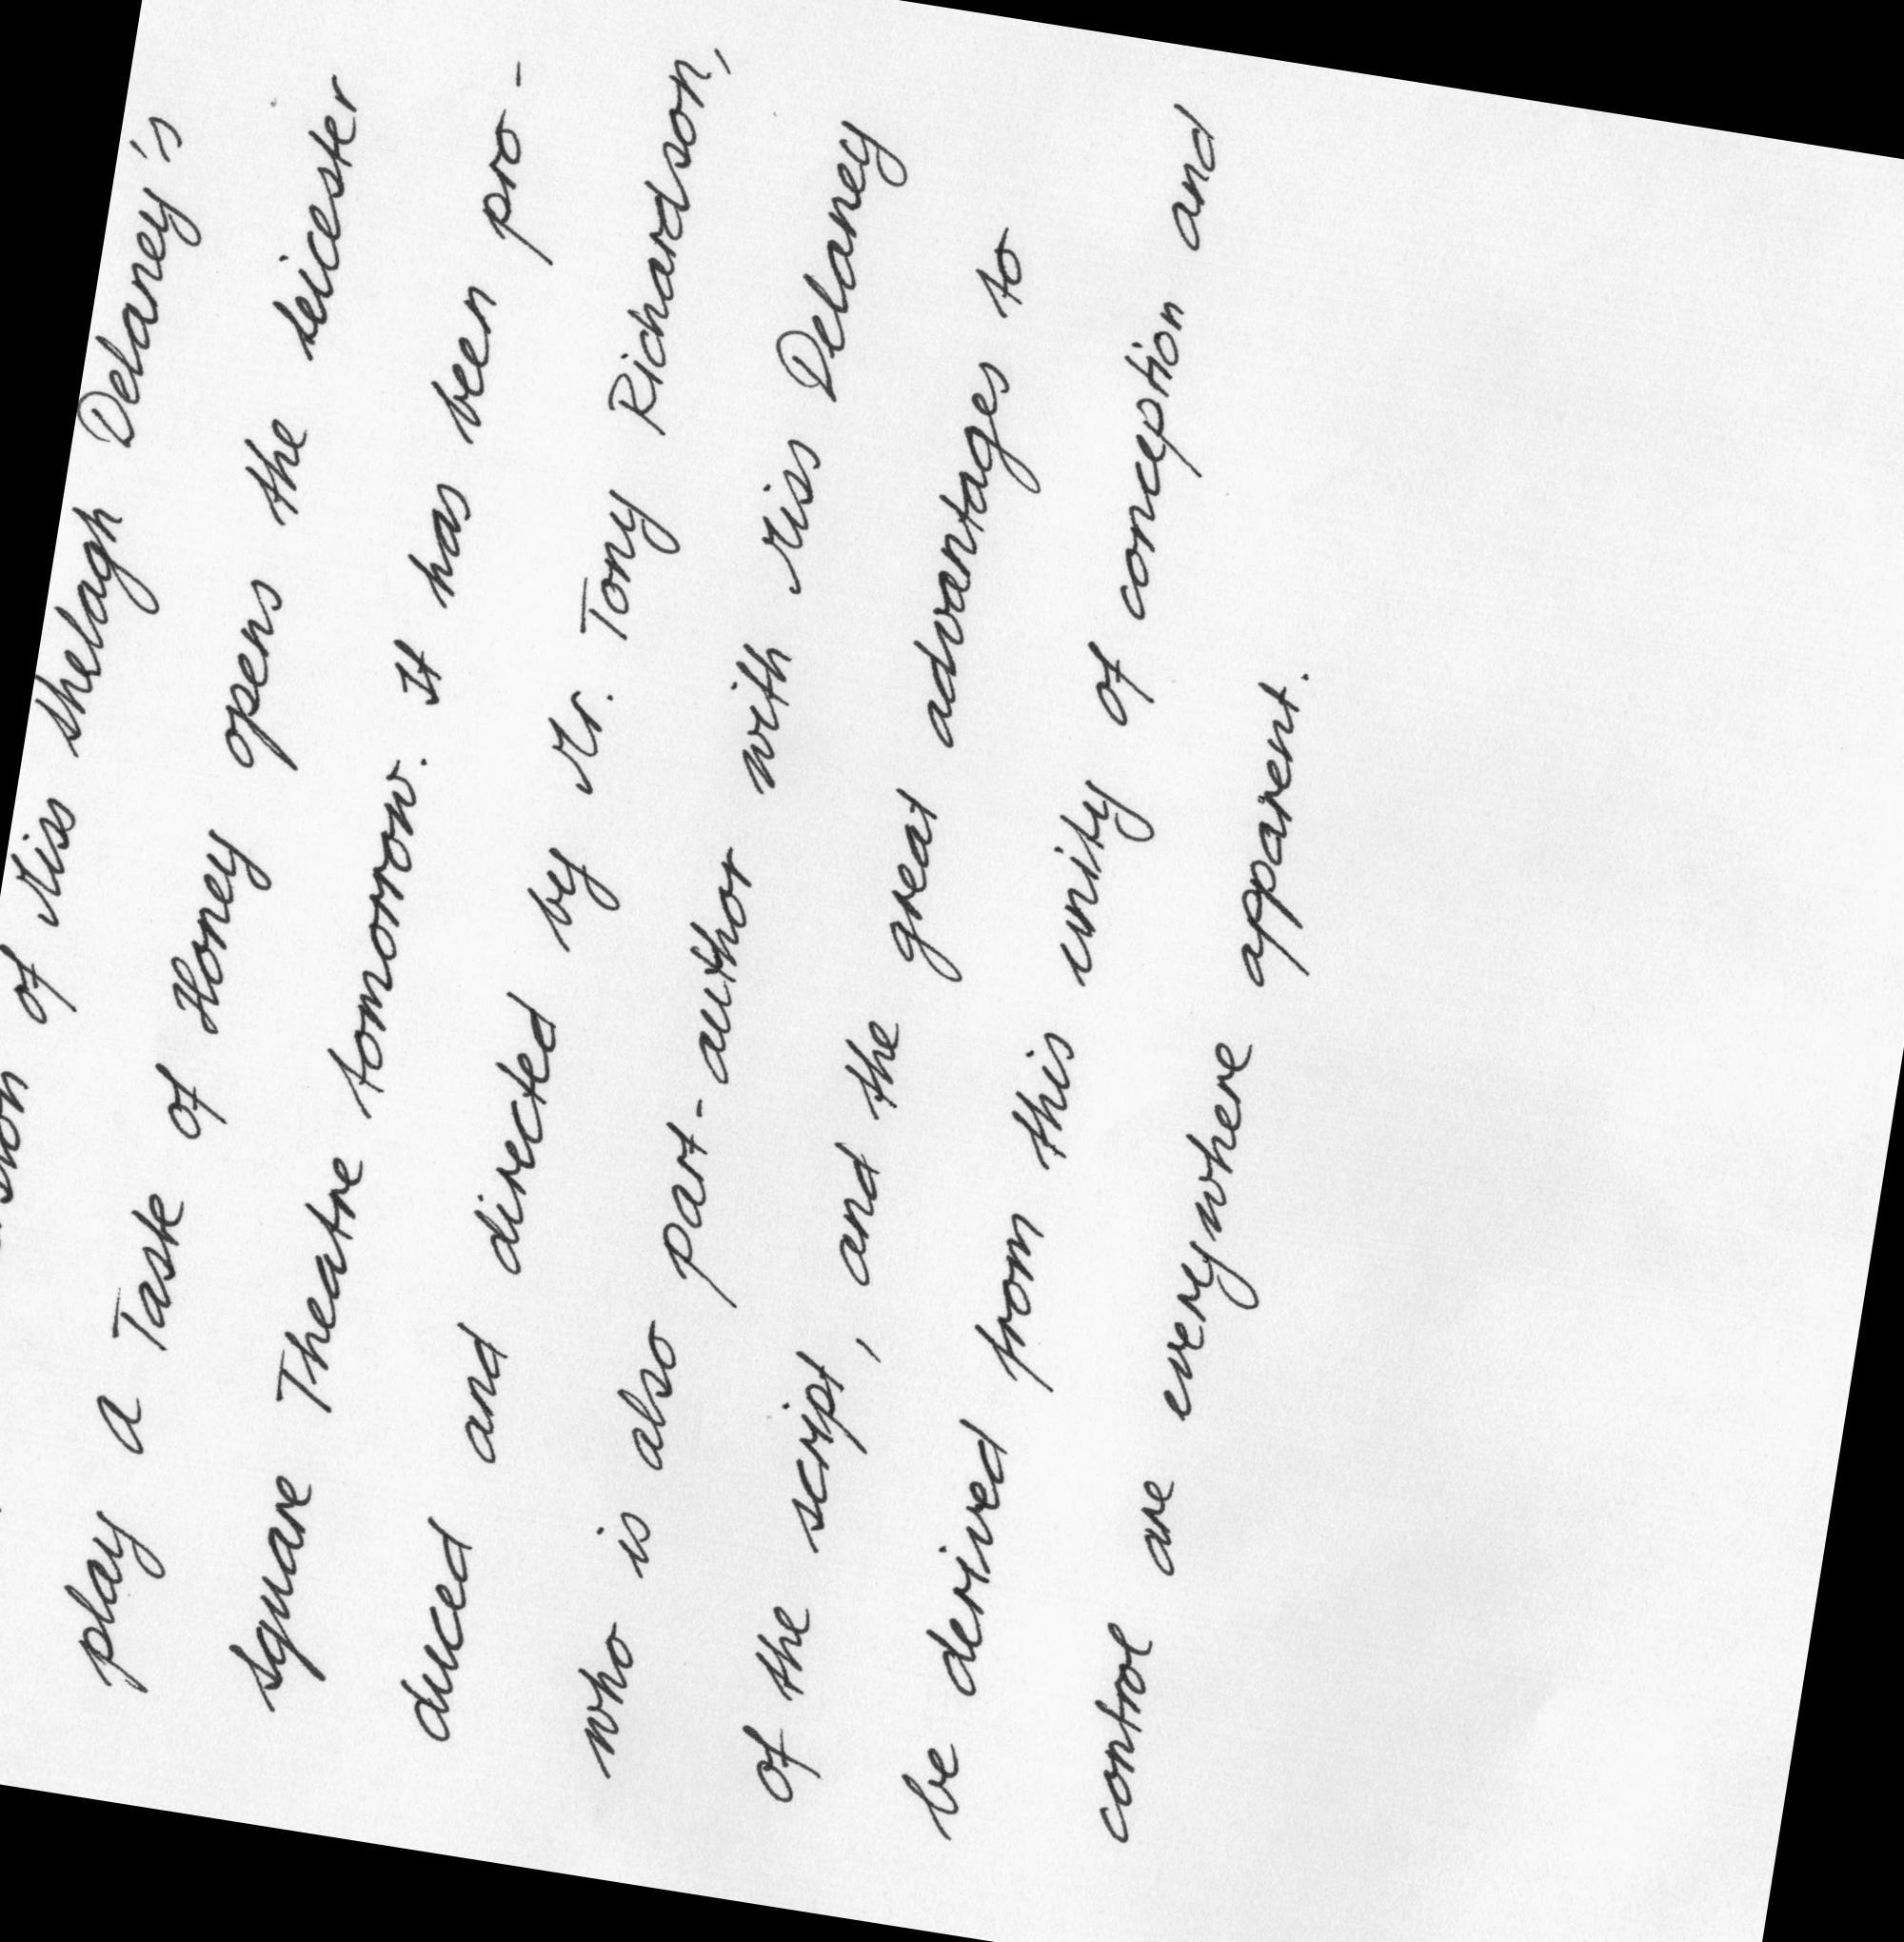 of Miss Shelagh Delaney's
play A Taste of Honey opens the Leicester
Square Theatre tomorrow. It has been pro-
duced and directed by Mr. Tony Richardson,
who is also part-author with Miss Delaney
of the script, and the great advantages to
be derived from this unity of conception and
control are everywhere apparent.